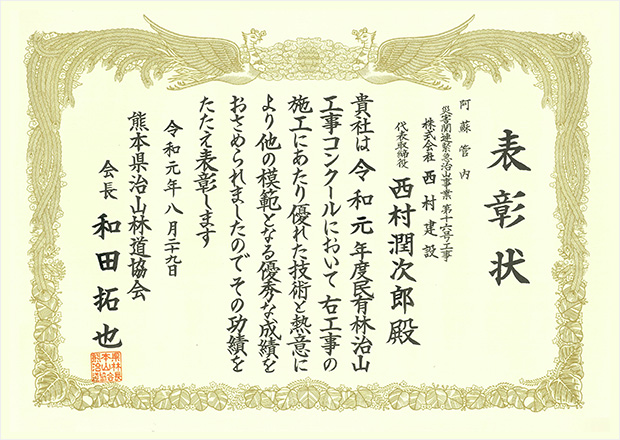 表彰状
阿蘇管内
災害関連緊急治山事業 第十六号工事
株式会社 西村建設
代表取締役 西村潤次郎 殿
貴社は令和元年度民有林治山
工事コンクールにおいて右工事の
施工にあたり優れた技術と熱意に
より他の模範となる優秀な成績を
おさめられましたのでその功績を
たたえ表彰します
令和元年八月二十九日
熊本県治山林道協会
会長 和田拓也